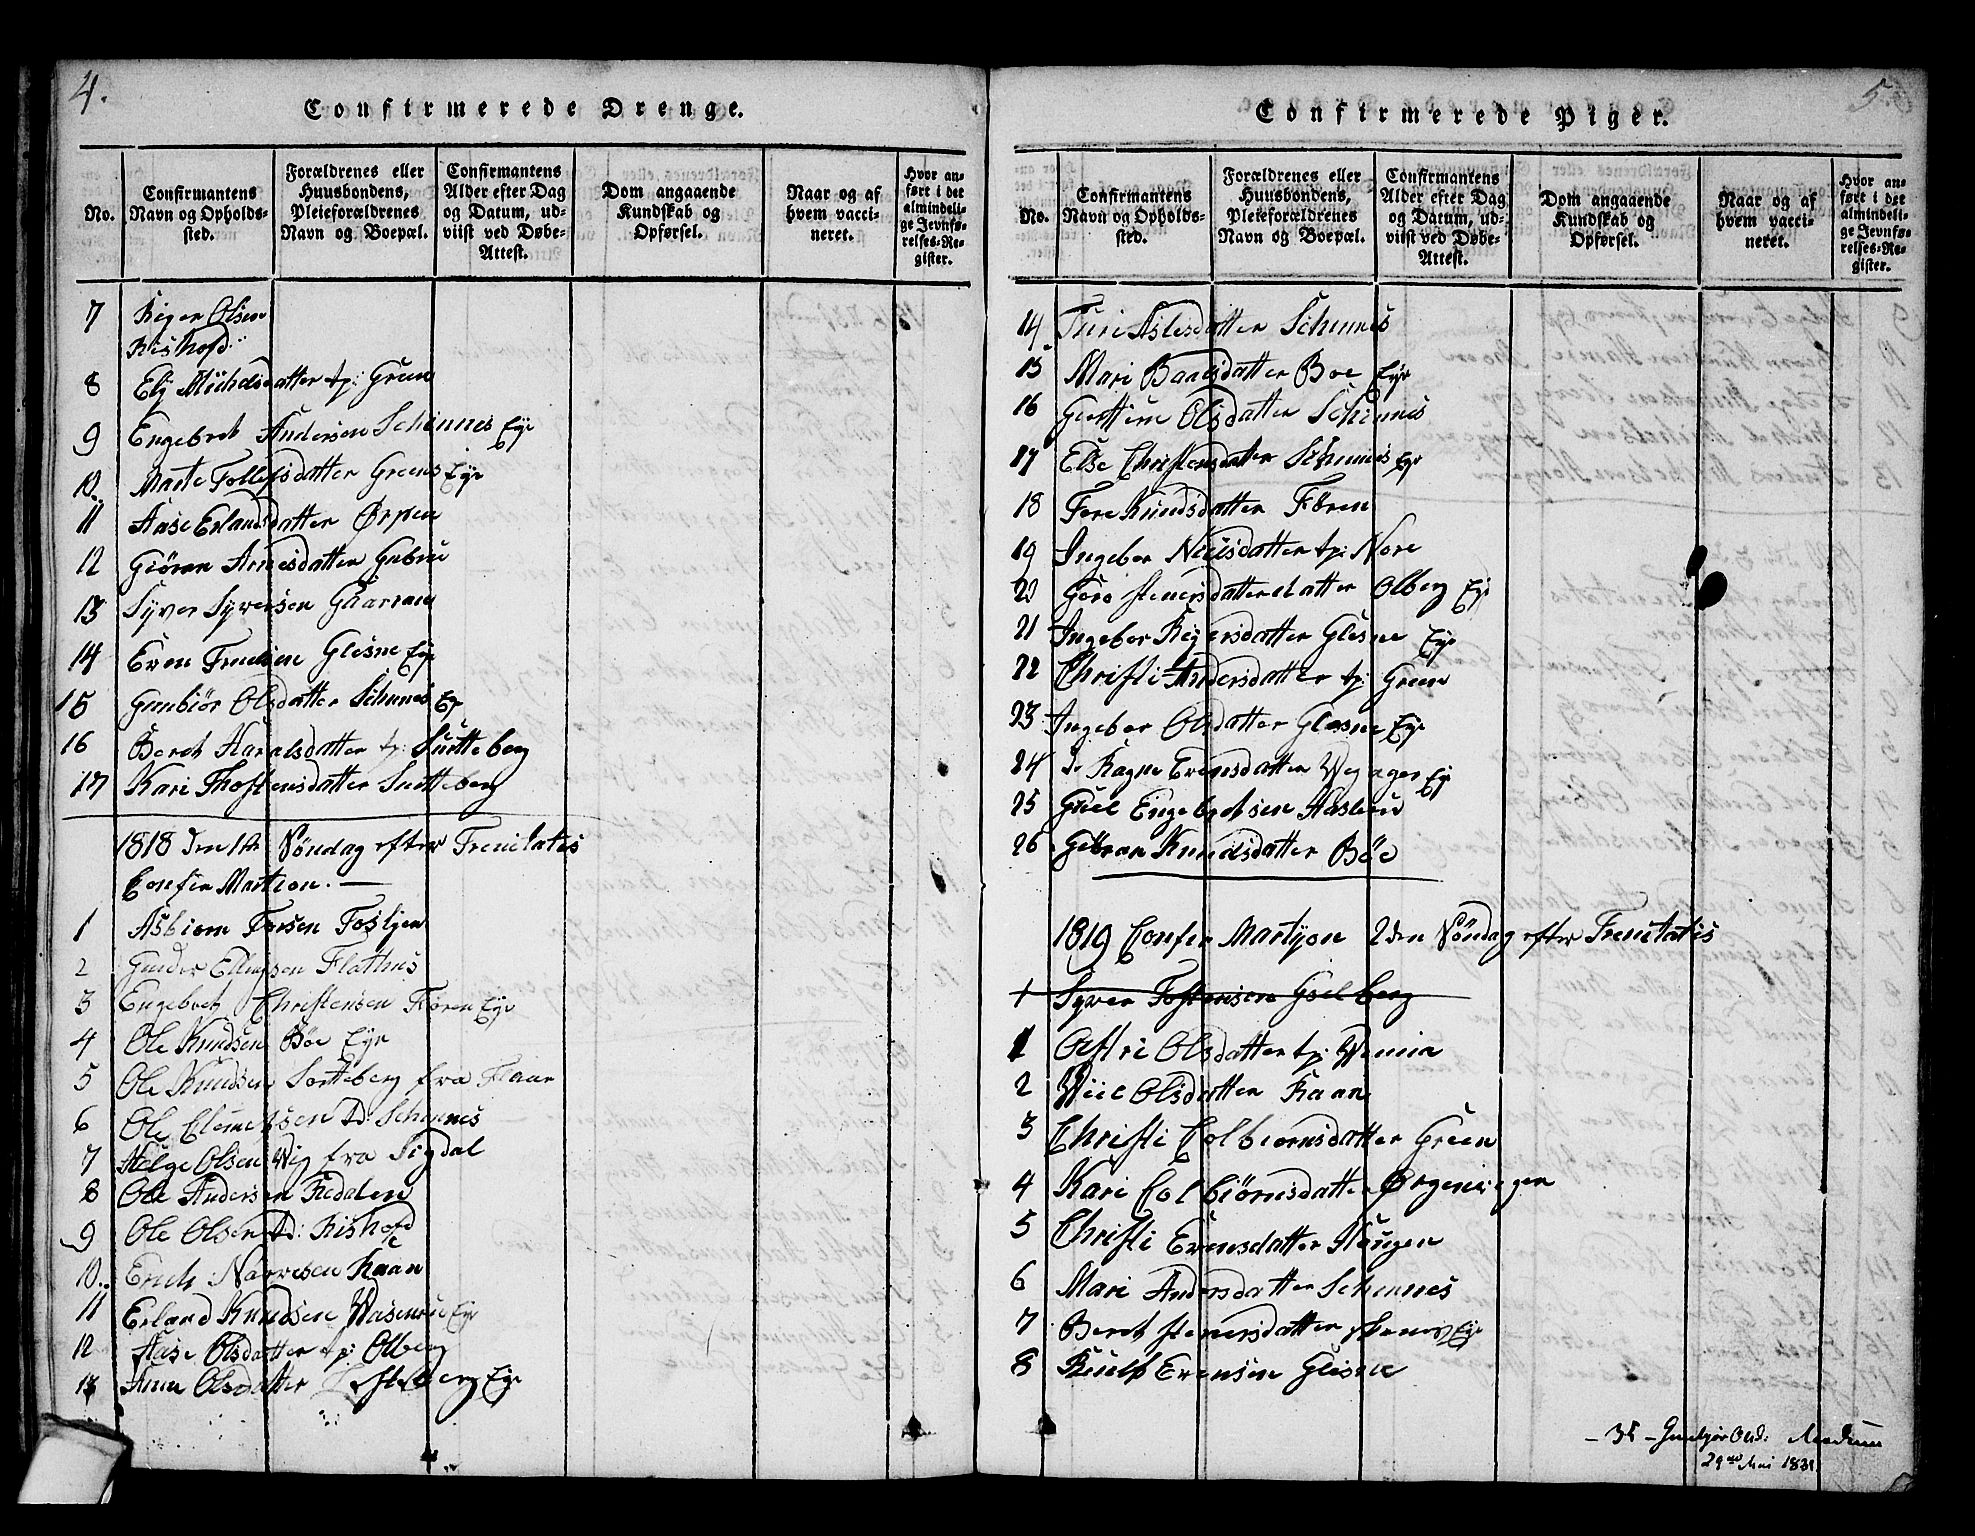 4.
Confirmerede Drenge.
No.
Confirmantens Navn og Opholds-sted.
Forældrenes eller Huusbondens, Pleieforældrenes Navn og Boepæl.
Confirmantens Alder efter Dag og Datum, ud-viist ved Døbe-Attest.
Dom angaaende Kundskab og Opførsel.
Naar og af hvem vacci-neret.
Hvor an-ført i det almindeli-ge Jevnfø-relses-Re-gister.
7 Riger Olsen
Rishofd
8 Elj Michelsdatter tp: Green
9 Engebret Andersen Schinnes Eye
10. Marte Tollefsdatter Greens Eye
11 Aase Erlandsdatter Ørpen
12 Giöran Arnesdatter Gubrue
13 Syver Syversen Gaarram
14 Even Truelsen Glesne Eye
15 Gunbiör Olsdatter Schunes Ey
16 Beret Haralsdatter tp: Surtteberg
17 Kari Thostensdatter Surtteberg
1818 den 1te Söndag efter Trenetatis
Confer Martion.
1 Asbiorn Torsen Fosljen
2 Gunder Ellingsen Flathus
3 Engebret Christensen Fören Eye
4 Ole Knudsen Böe Eye
5 Ole Knudsen Sortteberg fra Flaae
6 Ole Clemetsen td: Schunes
7 Helge Olsen Wig fra Sigdal
8 Ole Andersen Redalen
9 Ole Olsen td: Rishofd
10. Erich Narvesen Raaen
11 Erland Knudsen Wasenrue Eye
12 Aase Olsdatter tp: Olberg
13 Anne Olsdatter Eye
5
Confirmerede Piger.
No.
Confirmantens Navn og Opholds-sted.
Forældrenes eller Huusbondens, Pleieforældrenes Navn og Boepæl.
Confirmantens Alder efter Dag og Datum, ud-viist ved Døbe-Attest.
Dom angaaende Kundskab og Opførsel.
Naar og af hvem vacci-neret.
Hvor an-ført i det almindeli-ge Jevnfø-relses-Re-gister.
14 Turi Aslesdatter Schunes
15 Mari Baarsdatter Boe Eye
16 Olsdatter Schinnes
17 Else Christensdatter Schunnes Eye
18 Tore Knudsdatter Fören
19 Ingebor Nilsdatter tp: Nore
20 Goro stenersdatterdatter Olberg Eye
21 Ingebor Reyersdatter Glesne Eye
22 Christi Andersdatter tp: Green
23 Ingebor Olsdatter Glesne Eye
24 Ragne Evensdatter Wegager Ey
25 Giiel Engebretsen Haslerue
26 Göran Knudsdatter Böe
1819 Confer Martyon 2den Söndag efter Trenetatis
1 Syver Tostensen Gulberg
1 Astri Olsdatter tp: Wemin
2 Wiil Olsdatter Raan
3 Christi Colbiornsdatter Green
4 Kari Colbiörnsdatter Ørgenvigen
5 Christi Evensdatter Haugen
6 Mari Andersdatter Schunnes
7 Beret stenersdatter skenes Eye
8 Evensen Glesne
- 35 - Gunbjør Olsd:
29de Mai 1831.